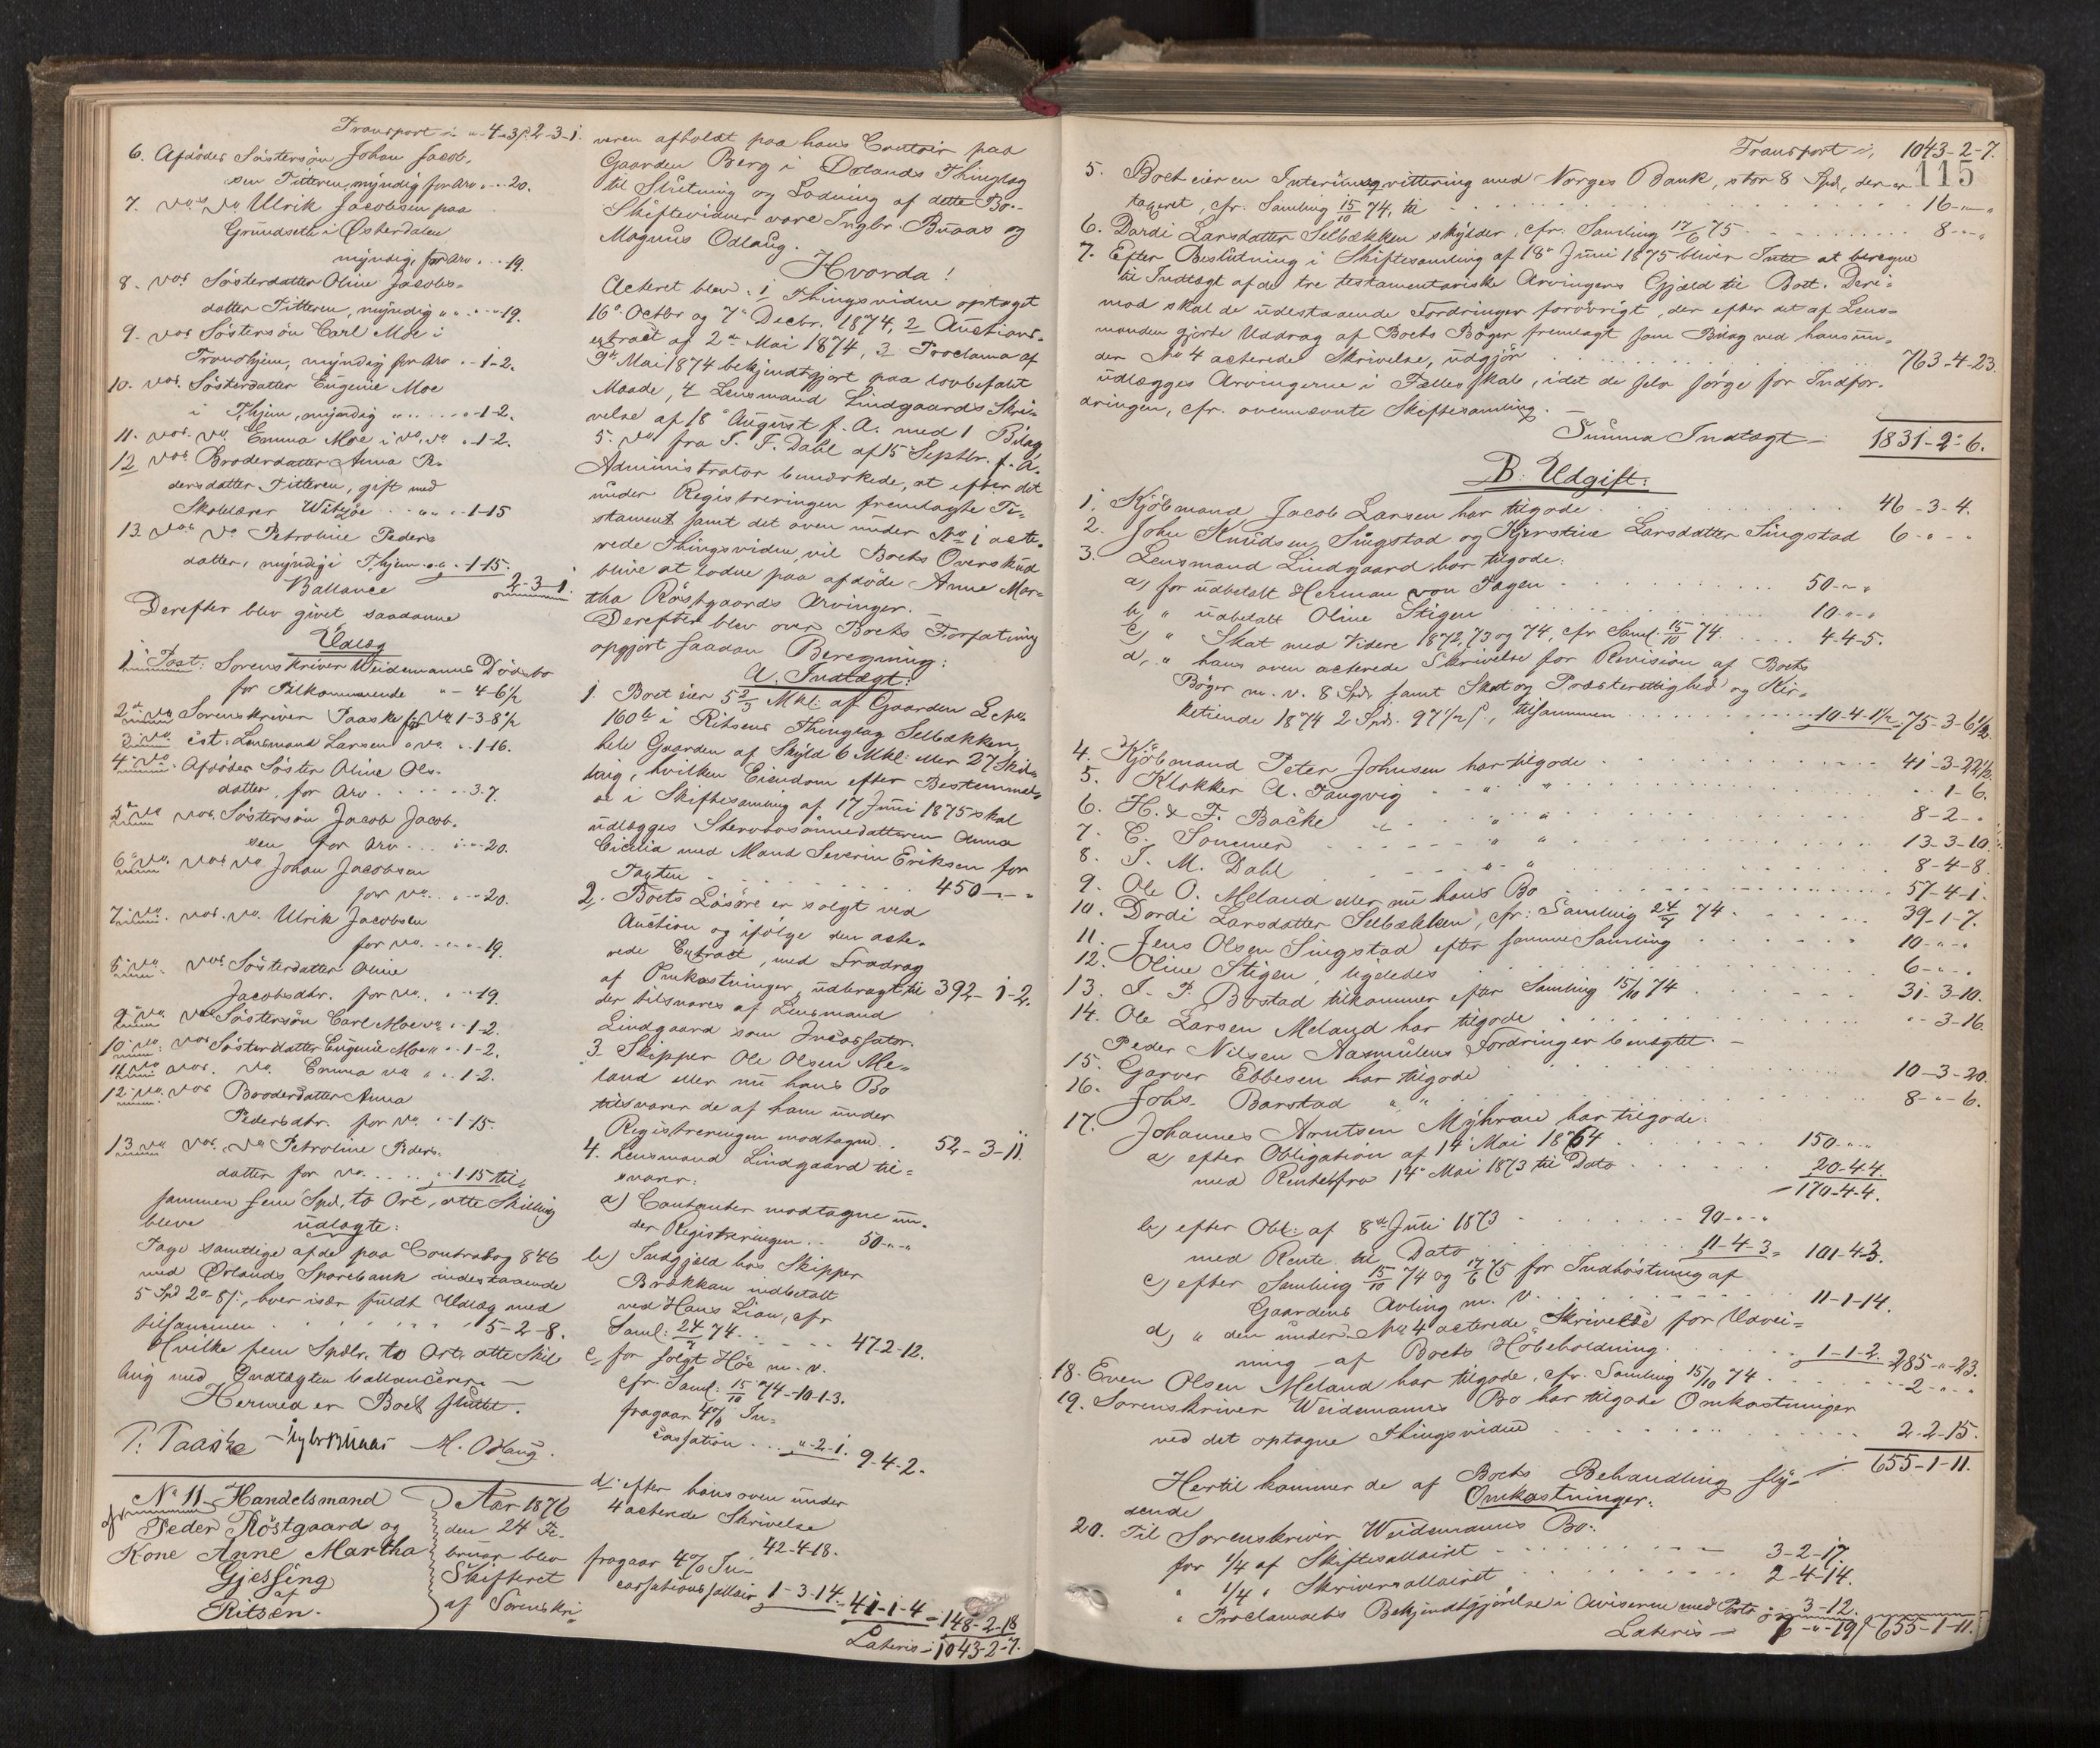 Transport
6. Afdødes Søstersøn Johan Jacob-
sen Titteren, myndig for Arv " - " - 20.
7. do. do Ulrik Jacobsen paa
Grundseth i Østerdalen
myndig, for Arv " - " - 19.
8. do. Søsterdatter Oline Jacobs-
datter Titteren, myndig " - " - 19.
9. do. Søstersøn Carl Moe i
Trondhjem, myndig for Arv " - 1 - 2.
10. do. Søsterdatter Eugenie Moe
i Thjem, myndig " - 1 - 2.
11. do. do. Emma Moe i do. do " - 1 - 2.
12 do. Broderdatter Anna Pe-
dersdatter Titteren, gift med
Skolelærer " - 1 - 15
13. do. do Petroline Peders
datter, myndig i Thjem " - 1 - 15.
Ballance 2 - 3 - 1.
Derefter blev givet saadanne
Udlæg
1. Post: Sorenskriver Weidemanns Dødsbo
for Tilkommende " - 4 - 6 1/2
2den do Sorenskriver Paaske for do 1 - 3 - 8 1/2
3die do cst. Lensmand Larsen " do. " - 1 - 16.
4de do. Afdødes Søster Oline Ols-
datter, for Arv 3. 7.
5te do do. Søstersøn Jacob Jacob-
sen for Arv " - " - 20.
6te do. do. do Johan Jacobsen
for do. " - " - 20.
7de do. do. do. Ulrik Jacobsen
for do. " - " - 19.
8de do. do. Søsterdatter Oline
Jacobsdtr. for do. " - " - 19.
9de do. do Søstersøn Carl Moe do " - 1 - 2.
10de do. do Søsterdatter Eugenie Moe " " - 1 - 2.
11te do. do. Emma do " " - 1 - 2.
12te do. do. Broderdatter Anna
Pedersdtr. for do. " - 1 - 15.
13de do do. do Petroline Peders-
datter for do. " - 1 - 15 til-
sammen fem Spd, to Ort, otte Skilling
bleve udlagte:
Tage samtlige af de paa Contrabog 846
med Ørlands Sparebank indestaaende
5 Spd 2 Ort 8 s, hver især fuldt Udlæg med
tilsammen 5 - 2 - 8.
Hvilke fem Spdlr. to Ort otte Skil-
ling med Indtægten ballancerer. —
Hermed er Boet sluttet.
P. Paaske Ingbr Buaas M. Odlaug.
No 11. Handelsmand
Peder Röstgaard og
Kone Anne Martha
Gjessing
af
Ritsen.
Aar 1876
den 24 Fe-
bruar blev
Skifteret
af Sorenskri-
veren afholdt paa hans Contoir paa
Gaarden Berg i Ørlands Thinglag
til Slutning og Lodning af dette Bo. -
Skiftevidner vare Ingbr. Buaas og
Magnus Odlaug.
Hvorda!
Acteret blev: 1, Thingsvidne optaget
16de Octbr og 7de Decbr. 1874, 2 Auctions-
extract af 2den Mai 1874, 3 Proclama af
9de Mai 1874 bekjendtgjort paa lovbefalt
Maade, 4 Lensmand Lindgaards Skri-
velse af 18de August f. A. med 1 Bilag
5. do fra S. F. Dahl af 15 Septbr. f. A.
Administrator bemærkede, at efter det
under Registreringen fremlagte Te-
stament samt det oven under No 1 acte-
rede Thingsvidne, vil Boets Overskud
blive at lodne paa afdøde Anne Mar-
tha Röstgaards Arvinger. —
Derefter blev over Boets Forfatning
opgjort saadan Beregning:
A. Indtægt:
1. Boet eier 5 2/5 Mkl. af Gaarden L. No
160 b i Ritsens Thinglag Selbækken,
hele Gaarden af Skyld 6 Mkl: eller 27 Skil-
ling, hvilken Eiendom efter Bestemmel-
se i Skiftesamling af 17 Juni 1875 skal
udlægges Sterbosønnedatteren Anna
Cicilia med Mand Severin Eriksen for
Taxten 450 - " - "
2. Boets Løsøre er solgt ved
Auction og ifølge den acte-
rede Extract, med Fradrag
af Omkostninger, udbragt til 392 - 1 - 2.
der tilsvares af Lensmand
Lindgaard som Incassator.
3. Skipper Ole Olsen Me-
land eller nu hans Bo
tilsvarer de af ham under
Registreringen modtagne 52 - 3 - 11.
4. Lensmand Lindgaard til-
svarer:
a) Contanter modtagne un-
der Registreringen 50 - " - "
b) Indgjæld hos Skipper
Brækkan indbetalt
ved Hans Lian, cfr
Saml: 24/7 74 47 - 2 - 12.
c, for solgt Høe m. v.
cfr Saml: 15/10 74 - 10 - 1 - 3.
fragaar 4% In-
cassation " - 2 - 1. 9 - 4 - 2.
d. efter hans oven under
4 acterede Skrivelse
42 - 4 - 18.
fragaar 4% In-
cassationssallair 1 - 3 - 14. 41 - 1 - 4 = 148 - 2 - 18
Lateris - 1043 - 2 - 7.
Transport 1043 - 2 - 7.
115
5. Boet eier en Interimsqvittering med Norges Bank, stor 8 Spd, der er
taxeret, cfr. Samling 15/10 74, til 16 - " - "
6. Dordi Larsdatter Selbækken skylder, cfr. Samling 17/6 75 8 - " - "
7. Efter Beslutning i Skiftesamling af 18de Juni 1875 bliver Intet at beregne
til Indtægt af de tre testamentariske Arvingers Gjæld til Boet. Deri-
mod skal de udestaaende Fordringer forøvrigt, der efter det af Lens-
manden gjorte Uddrag af Boets Bøger fremlagt som Bilag ved hans un-
der No 4 acterede Skrivelse, udgjør 763 - 4 - 23.
udlægges Arvingerne i Fællesskab, idet de selv sørge for Indfor-
dringen, cfr. ovennævnte Skiftesamling. —
Summa Indtægt — 1831 - 2 - 6.
B. Udgift:
1. Kjöbmand Jacob Larsen har tilgode 46 - 3 - 4.
2. John Knudsen Singstad og Kjerstine Larsdatter Singstad 6 - " - "
3. Lensmand Lindgaard har tilgode:
a, for udbetalt Herman von Tagen 50 - " - "
b, " udbetalt Oline Stigen 10 - " - "
c, " Skat med Videre 1872, 73 og 74, cfr Saml. 15/10 74 4 - 4 - 5.
d, " hans oven acterede Skrivelse for Revision af Boets
Bøger m. v. 8 Spd. samt Skat og Præsterettighed og Kir-
ketiende 1874 2 Spd. 97 1/2 s, tilsammen 10 - 4 - 1 1/2 75 - 3 - 6 1/2
4. Kjöbmand Peter Johnsen har tilgode 41 - 3 - 22 1/2.
5. Klokker A. Tangvig " " " - 1 - 6.
6. H. & F. Backe " " 8 - 2 - "
7. C. Sommer " " 13 - 3 - 10.
8. I. M. Dahl " " 8 - 4 - 8.
9. Ole O. Meland eller nu hans Bo 57 - 4 - 1.
10. Dordi Larsdatter Selbækken, cfr: Samling 24/7 74 39 - 1 - 7.
11. Jens Olsen Singstad efter samme Samling 10 - " - "
12. Oline Stigen, ligeledes 6 - " - "
13. I. P. Borstad tilkommer efter Samling 15/10 74 31 - 3 - 10.
14. Ole Larsen Meland har tilgode " - 3 - 16.
Peder Nilsen Aasmulens Fordringer benægtet. —
15. Garver Ebbesen har tilgode 10 - 3 - 20.
16. Johs. Barstad " " 8 - " - 6.
17. Johannes Arntsen Myhran har tilgode:
a, efter Obligation af 14de Mai 1864 150 - " - "
med Renter fra 14de Mai 1873 til Dato 20 - 4 - 4.
170 - 4 - 4.
b, efter Obl: af 8de Juli 1873 90 - " - "
med Rente til Dato 11 - 4 - 3 = 101 - 4 - 3.
c, efter Samling 15/10 74 og 17/6 75 for Indhøstning af
Gaardens Avling m. v. 11 - 1 - 14.
d, " den under No 4 acterede Skrivelse for Udvei-
ning af Boets Høbeholdning 1 - 1 - 2. 285 - " - 23.
18. Even Olsen Meland har tilgode, cfr. Samling 15/10 74 2 - " - "
19. Sorenskriver Weidemanns Bo har tilgode Omkostninger
ved det optagne Thingsvidne 2 - 2 - 15.
655 - 1 - 11.
Hertil kommer de af Boets Behandling fly-
dende Omkostninger:
20. Til Sorenskriver Weidemanns Bo:
for 1/4 af Skiftesallairet 3 - 2 - 17.
" 1/4 " Skriversallairet 2 - 4 - 14.
" Proclamaets Bekjendtgjørelse i Aviserne med Porto " - 3 - 12.
Lateris — 7 - " - 19 655 - 1 - 11.